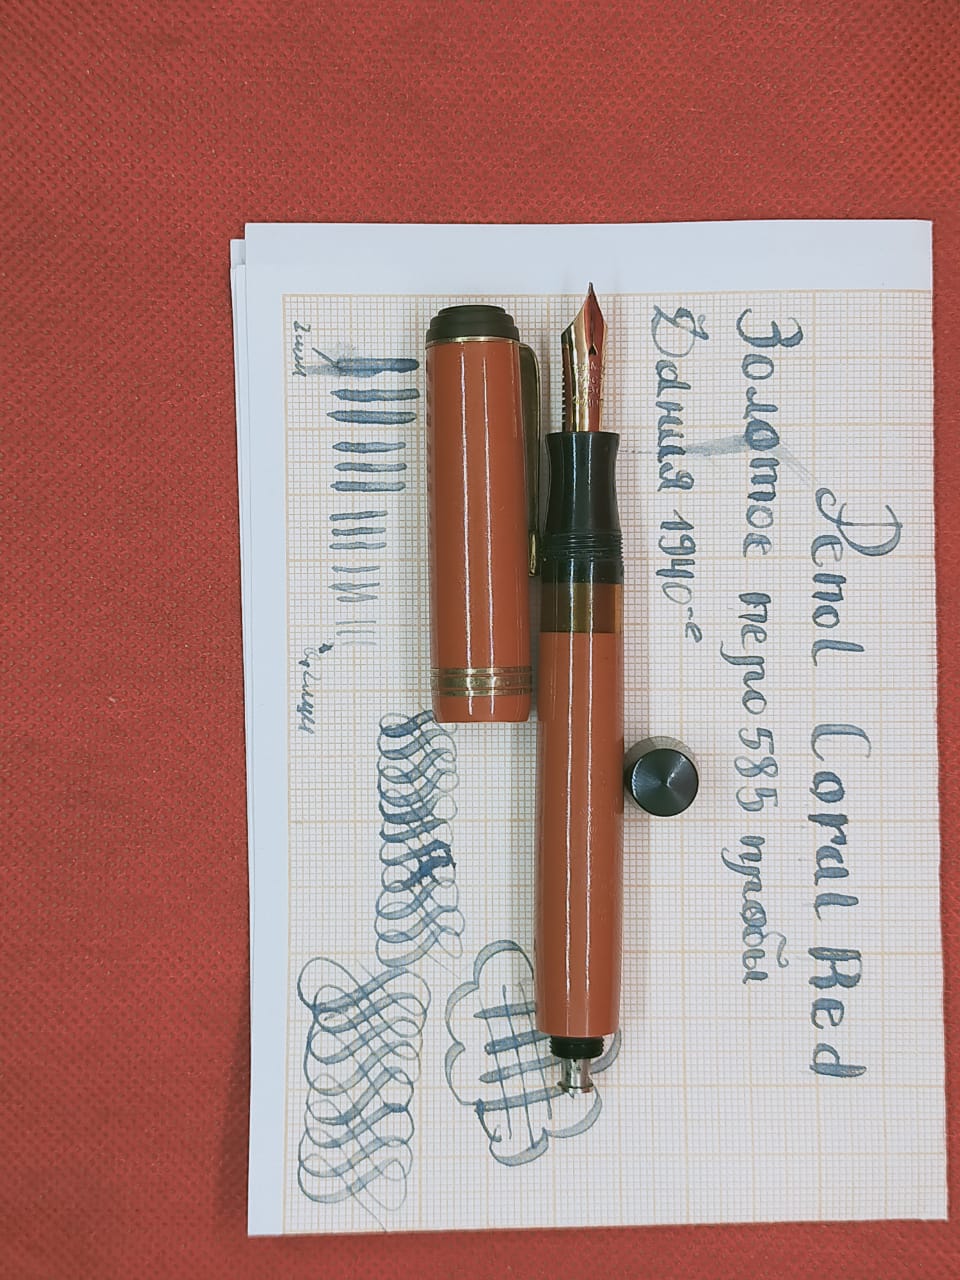 Penol Coral Red
Золотое перо 585 пробы
Дания 1940-е
2мм